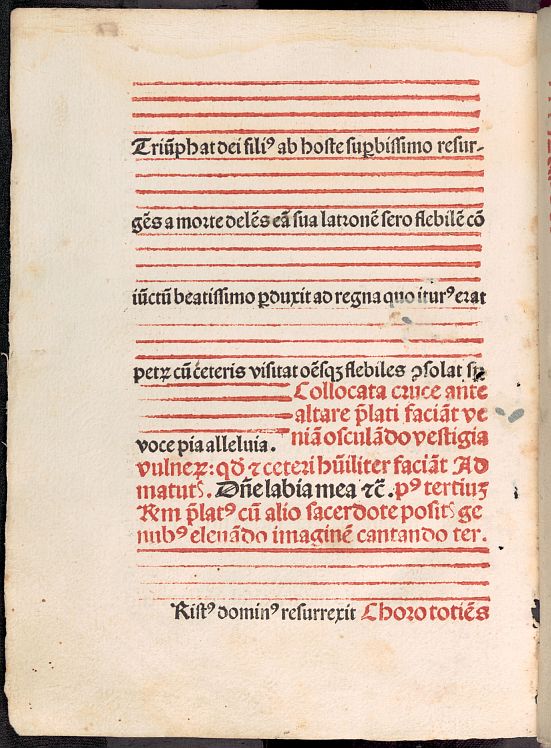 Triūphat dei filiꝰ ab hoste suꝑbissimo resur-
gēs a morte delēs eā sua latronē sero flebilē cō
iūctū beatissimo ꝑduxit ad regna quo iturꝰ erat
petrꝫ cū ceteris visitat oēsqꝫ flebiles ꝯsolat su
Collocata cruce ante
altare p̄lati faciāt ve
niā osculādo vestigia
voce pia alleluia.
vulneꝝ: qd̄ ⁊ ceteri hūiliter faciāt Ad
matutꝭ. Dn̄e labia mea ⁊c̄. pꝰ tertiuꝫ
Rm p̄latꝰ cū alio sacerdote positꝭ ge
nubꝰ eleuādo imaginē cantando ter.
Ristꝰ dominꝰ resurrexit Choro totiēs